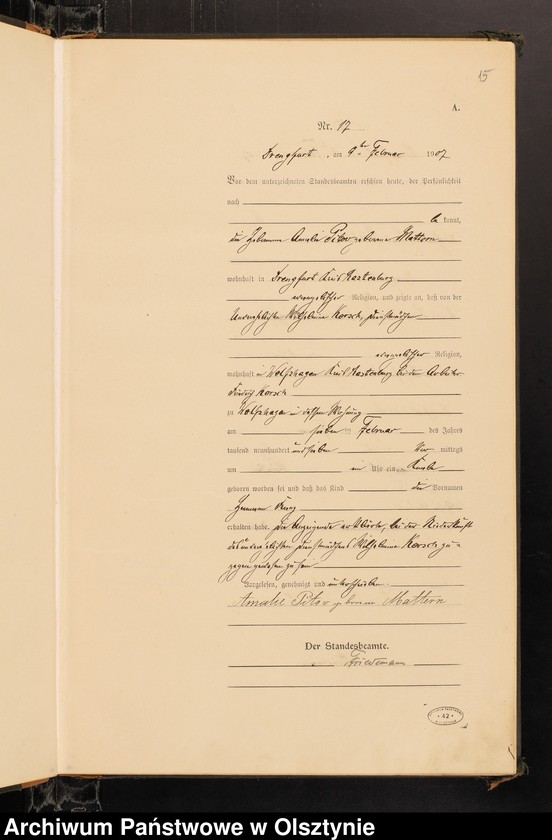 15
A.
Nr. 17
Drengfurt, am 9ten Februar 1907
Vor dem unterzeichneten Standesbeamten erschien heute, der Persönlichkeit
nach
be kannt,
die Hebamme Amalie Pitow geborene Mattern
wohnhaft in Drengfurt Kreis Rastenburg
evangelischer Religion, und zeigte an, daß von der
unverehelichten Wilhelmine Korsch, Dienstmädchen
evangelischer Religion,
wohnhaft in Wolfshagen Kreis Rastenburg bei dem Arbeiter
Korsch
zu Wolfshagen in dessen Wohnung
am sieben ten Februar des Jahres
tausend neunhundert und sieben Vor mittags
um Uhr ein Knabe
geboren worden sei und daß das Kind die Vornamen
Hermann Franz
erhalten habe. Die Anzeigende erklärte, bei der Niederkunft
des unverehelichten Dienstmädchens Wilhelmine Korsch zu-
gegen gewesen zu sein
Vorgelesen, genehmigt und unterschrieben.
Amalie Pitow geborene Mattern
Der Standesbeamte.
Friedemann
* 42 *
Archiwum Państwowe w Olsztynie